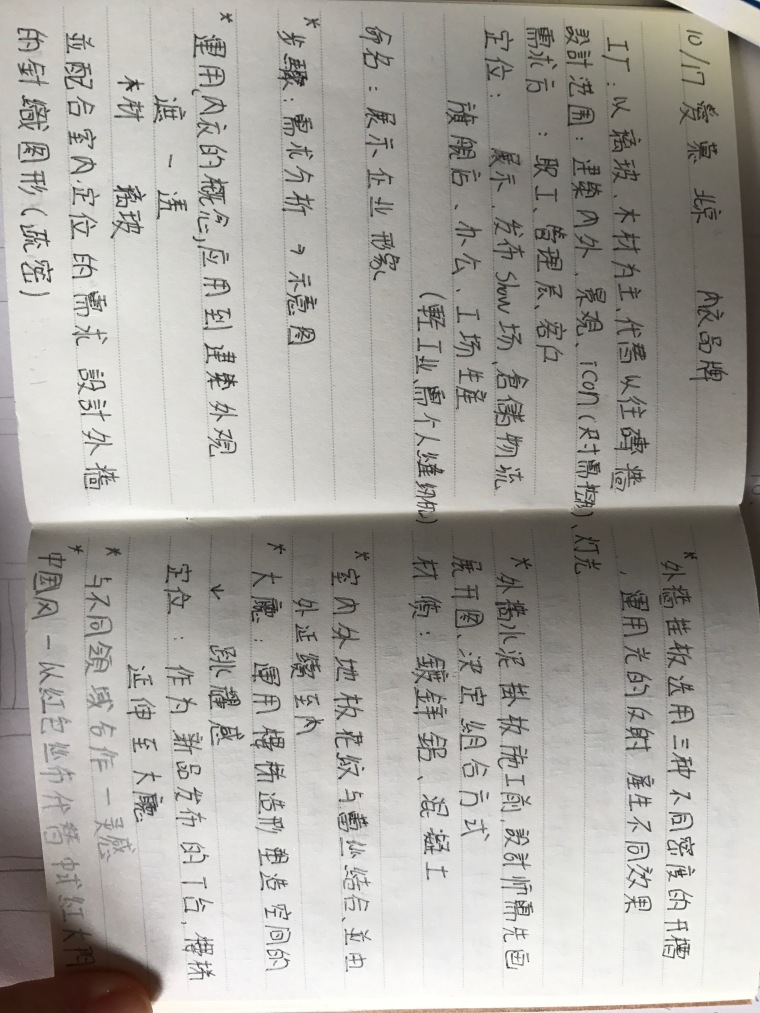 10/17 愛慕 北京 内衣品牌
工厂：以璃玻、木材为主、代替以往磚墙
設計范围：建築内外、景观、icon（附需挖掘）、灯光
需求方：职工、管理层、客户
定位：展示、发布show场、倉儲物流
旗舰店、办公、工场生産
（輕工业、需个人縫纫机）
命名：展示企业形象
* 步驟：需求分析→示意图
* 運用内衣的概念，应用到建築外观
遮 — 透
木材 璃玻
並配合室内定位的需求 設計外墙
的針織图形（疏密）
* 外墙挂板选用三种不同密度的开槽
，運用光的反射 產生不同效果
* 外墙水泥掛板施工前，設計师需先画
展开图、決定組合方式
材質：鍍鋅鋁、混凝土
* 室内外地板花紋与蕾丝結合、並由
外延續至内
* 大廳：運用樓梯造形 塑造空間的
↓ 跳耀感
定位：作为新品发布的T台，樓梯
延伸至大廳
* 与不同領域合作 — 灵感
* 中国风 — 以红色丝布代替中式红大門